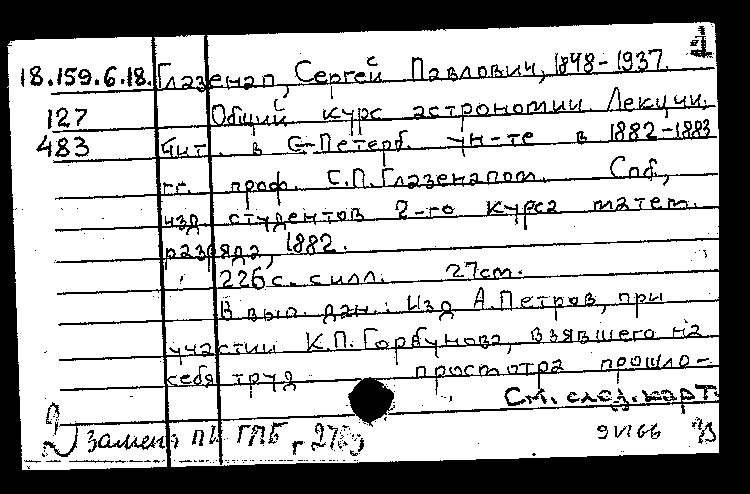 18.159.6.18. Глазенап, Сергей Павлович, 1848-1937.
127 Общий курс астрономии. Лекции,
483 чит. в С-Петерб. ун-те в 1882-1883
гг. проф. С.П.Глазенапом. Спб,
изд. студентов 2-го курса матем.
разряда, 1882.
226с. силл. 27см.
В вып. дан.: Изд А.Петров, при
участии К.П.Горбунова, взявшего на
себя труд просмотра прошло-
См. след. карт.
замена ГПБ
9 VI 66